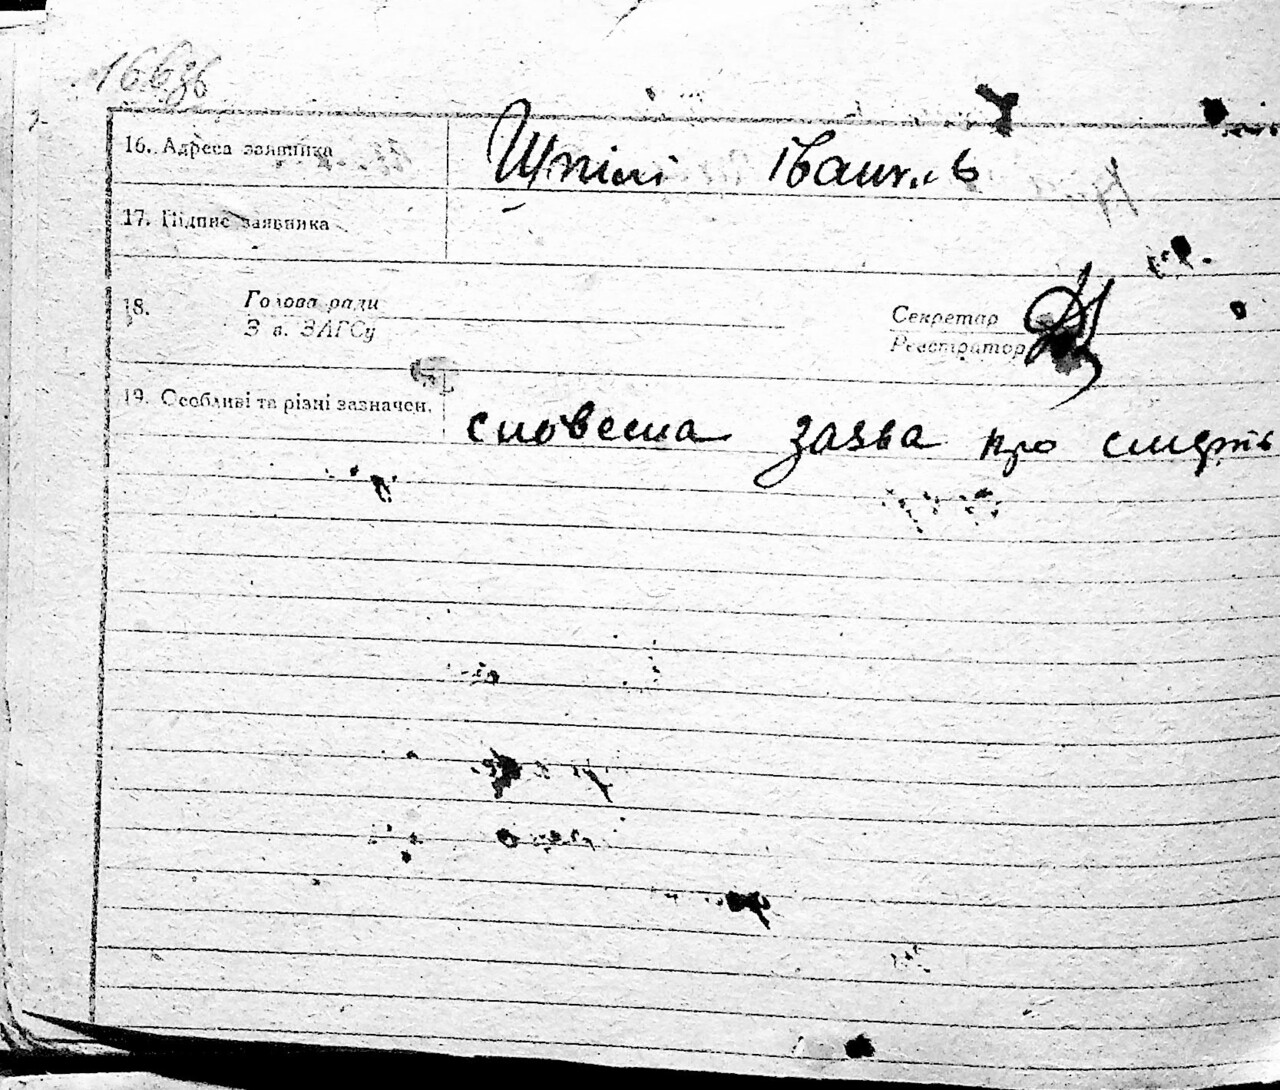 16. Адреса заявника Шпілі Іванк.. в
17. Підпис заявника
18. Голова ради Секретар
З в. ЗАГСу Реєстратор
19. Особливі та різні зазначен. словесна заява про смерть